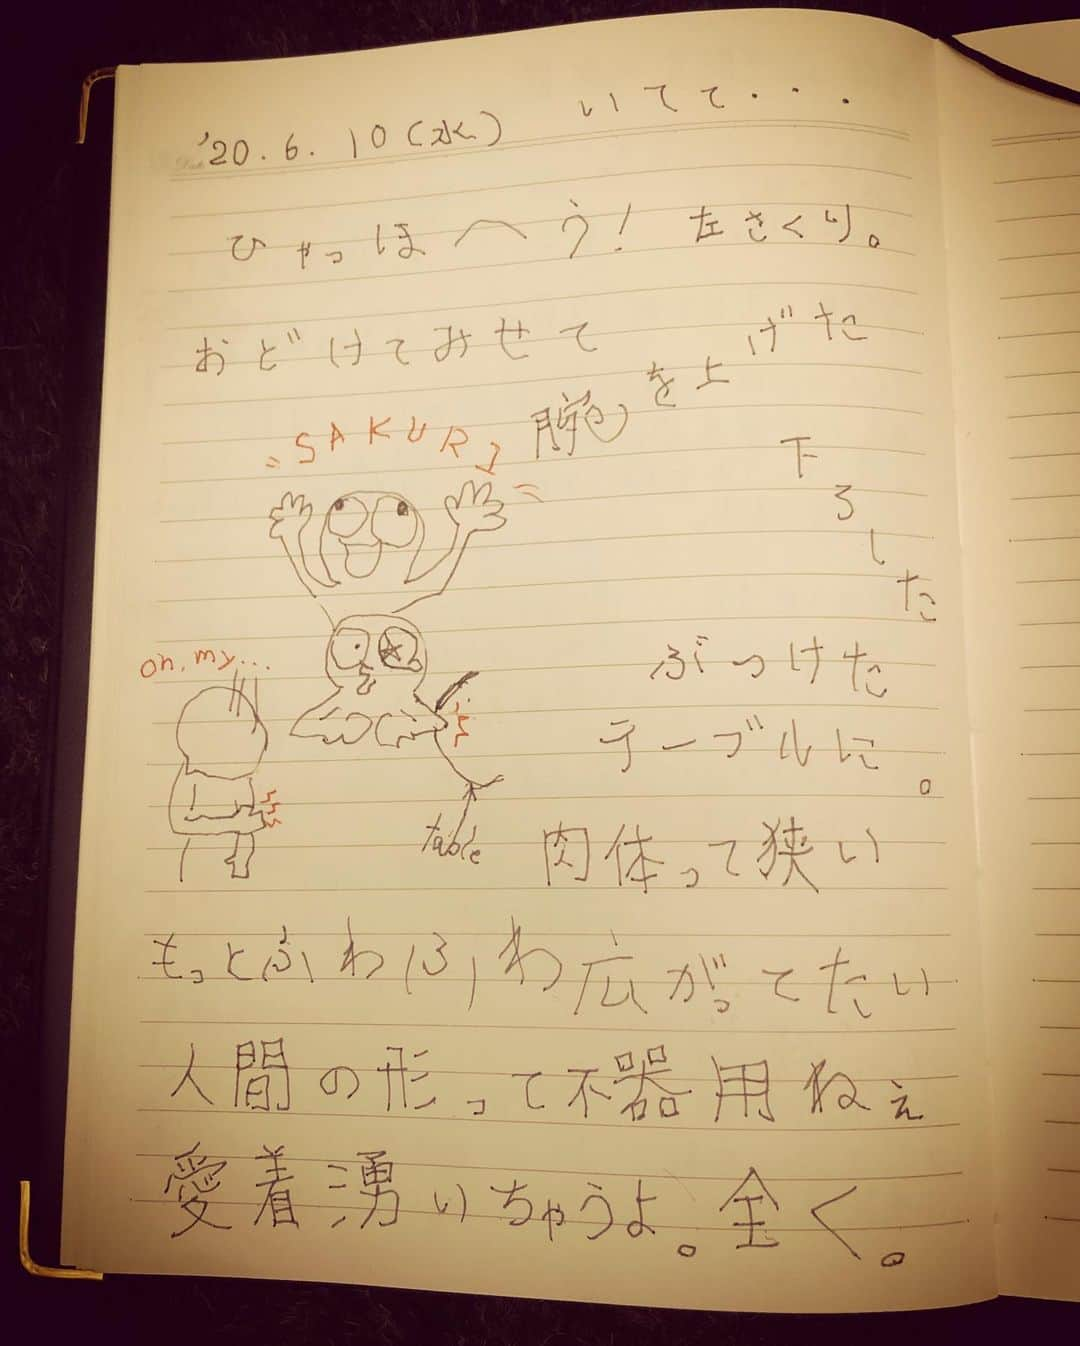 '20.6.10(水) いてて...
ひゃっほへう! 左さくり。
おどけてみせて
腕を上げた
下ろした
SAKURI
ぶつけた
oh, my...
テーブルに。
table
肉体って狭い
もっとふわふわ広がってたい
人間の形って不器用ねぇ
愛着湧いちゃうよ。全く。